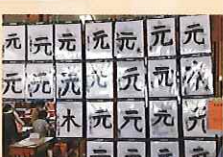 元 元 元 元 元 元 元
元 元 元 元 元 元
木 元 元 元
元 元 元